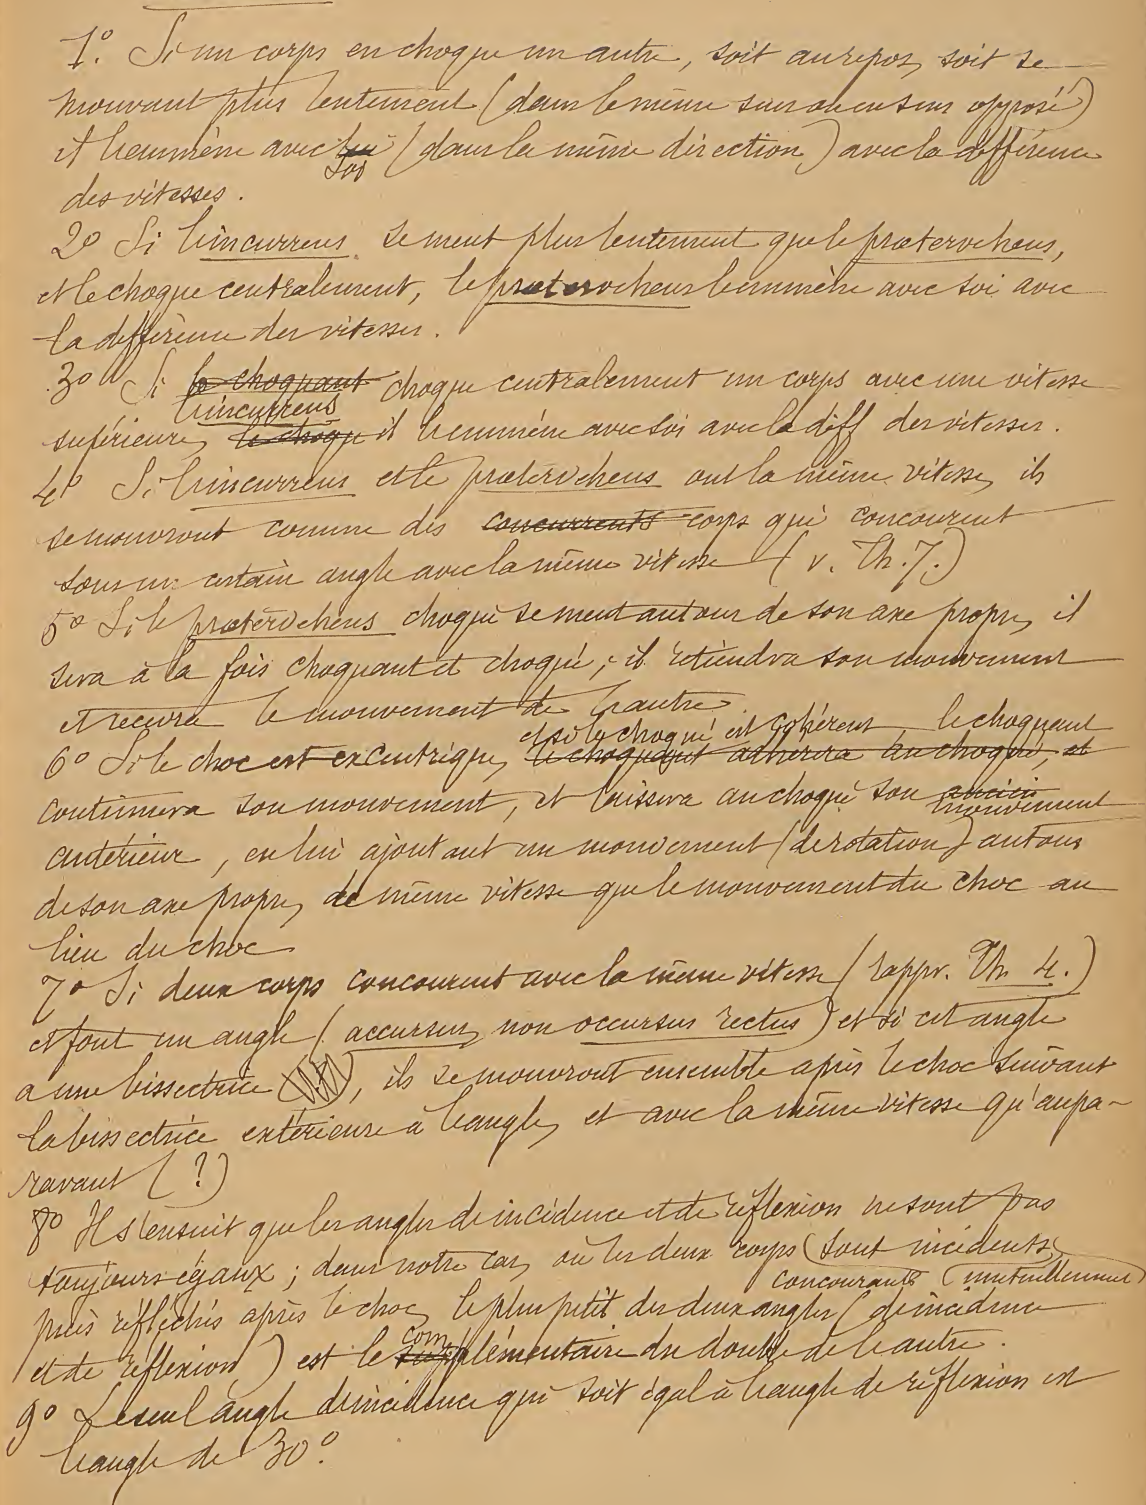 1°. Si un corps en choque un autre, soit au repos, soit se
mouvant plus lentement (dans le même sens ou en sens opposé)
il l'emmène avec lui soi (dans la même direction) avec la différence
des vitesses.
2° Si l'incurrens se meut plus lentement que le prætervehens,
et le choque centralement, le prætervehens l'emmène avec soi avec
la différence des vitesses.
3° Si le choquant choque centralement un corps avec une vitesse
l'incurrens
supérieure, le choqu il l'emmène avec soi avec la diff des vitesses.
4° Si l'incurrens et le prætervehens ont la même vitesse, ils
se mouvront comme des concurrents corps qui concourent
sous un certain angle avec la même vitesse (v. Th. 7.)
5° Si le prætervehens choqué se meut autour de son axe propre, il
sera à la fois choquant et choqué; il retiendra son mouvement
et recevra le mouvement de l'autre.
et si le choqué est cohérent le choquant
6° Si le choc est excentrique, le choquant adhérera au choqué, et
continuera son mouvement, et laissera au choqué son ancien
mouvement
antérieur, en lui ajoutant un mouvement (de rotation) autour
de son axe propre, de même vitesse que le mouvement du choc au
lieu du choc
7° Si deux corps concourent avec la même vitesse (rappr. Th. 4.)
et font un angle (accursus, non occursus rectus) et si cet angle
a une bissectrice, ils se mouvront ensemble après le choc suivant
la bissectrice extérieure à l'angle, et avec la même vitesse qu'aupa-
ravant (?)
8° Il s'ensuit que les angles de incidence et de réflexion ne sont pas
toujours égaux; dans notre cas, où les deux corps (sont incidents,
concourants (mutuellement)
puis réfléchis après le choc, le plus petit des deux angles (de incidence
et de réflexion) est le supplémentaire du double de l'autre.
com
9° Le seul angle d'incidence qui soit égal à l'angle de réflexion est
l'angle de 30°.